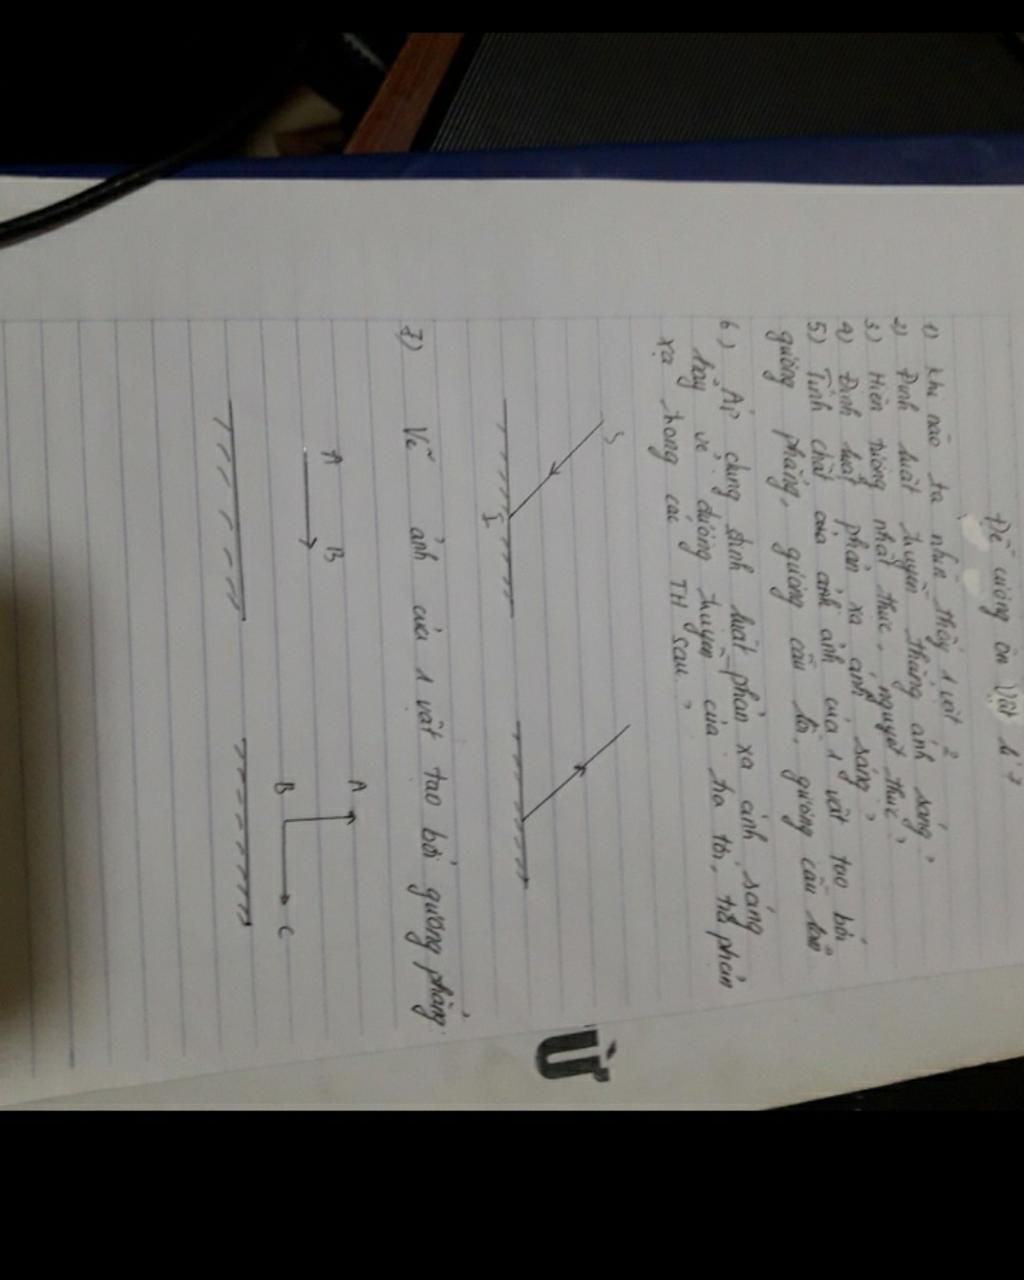 Đề cương ôn Vật lí 7
1) Khi nào ta nhìn thấy 1 vật ?
2) Định luật truyền thẳng ánh sáng ?
3) Hiện tượng nhật thực, nguyệt thực ?
4) Định luật phản xạ ánh sáng ?
5) Tính chất của ảnh ảnh của 1 vật tạo bởi
gương phẳng, gương cầu lồi, gương cầu lõm
6) Áp dụng định luật phản xạ ánh sáng
hãy vẽ đường truyền của tia tới, tia phản
xạ trong các TH sau ?
S
I
7) Vẽ ảnh của 1 vật tạo bởi gương phẳng.
A B
A
B C
Ử